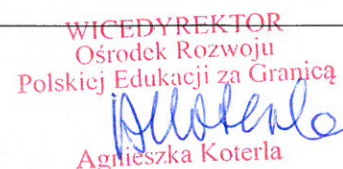 WICEDYREKTOR
Ośrodek Rozwoju
Polskiej Edukacji za Granicą
AKoterla
Agnieszka Koterla